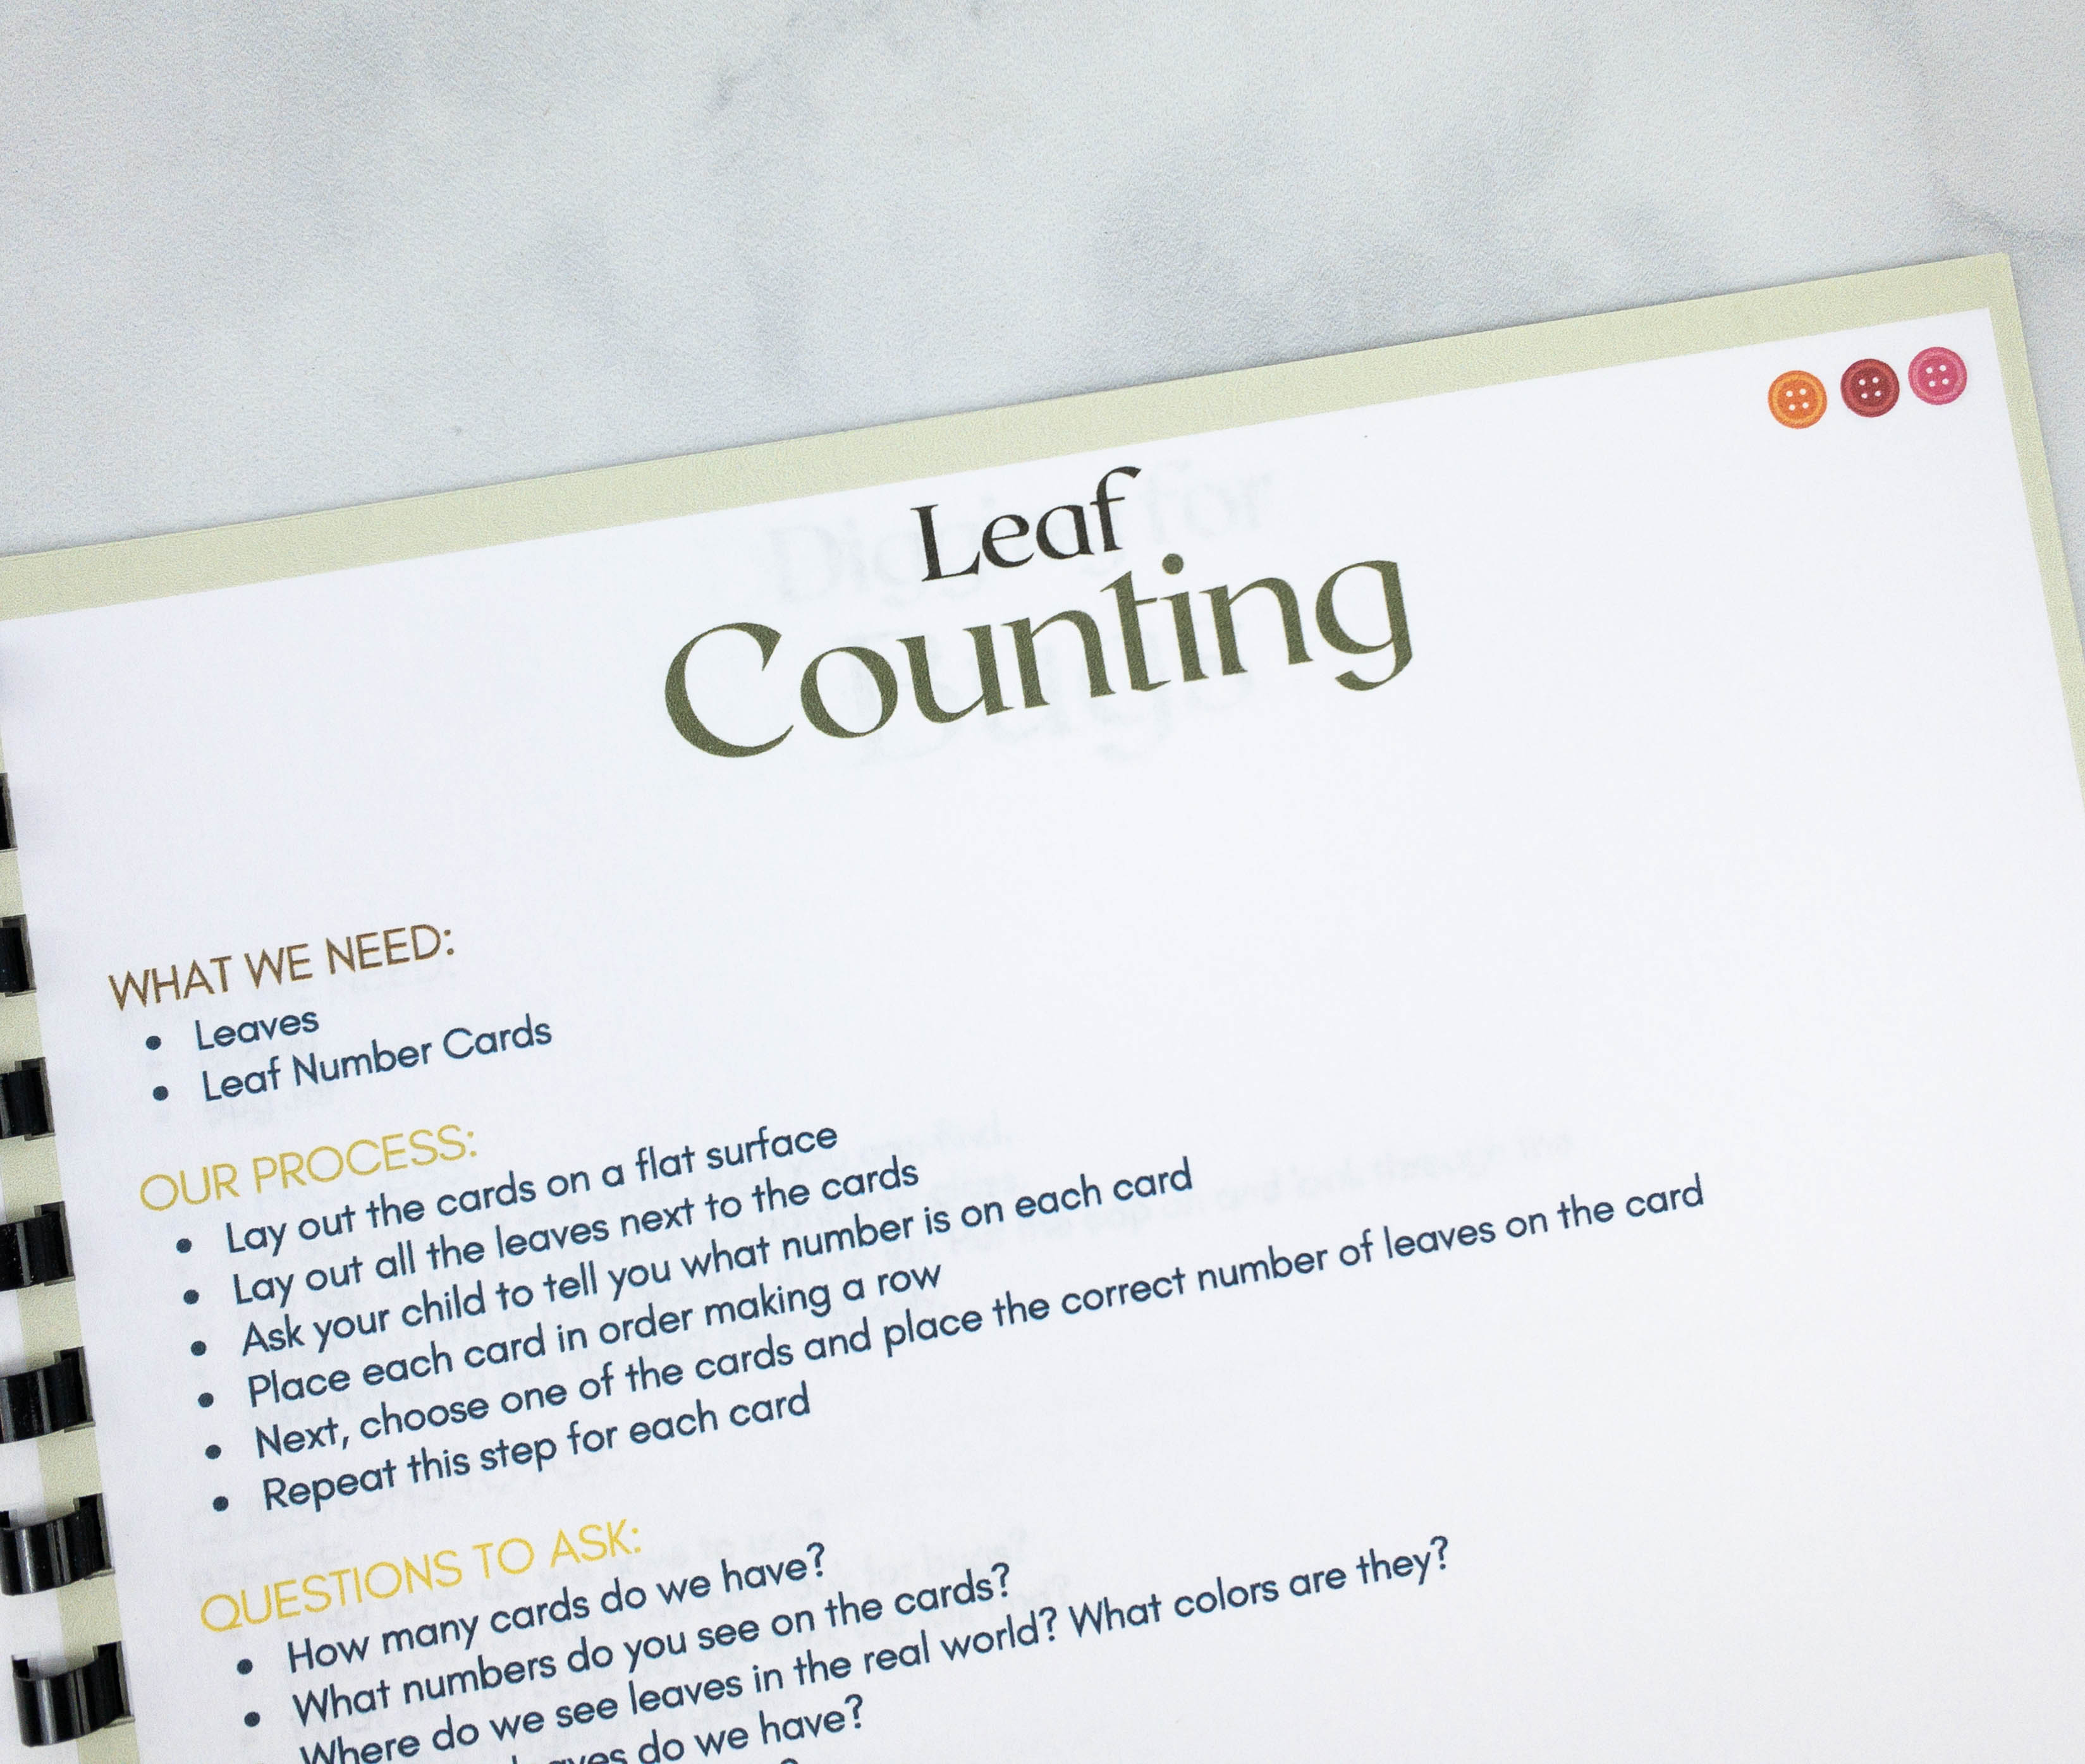 Leaf
Counting
WHAT WE NEED:
• Leaves
• Leaf Number Cards
OUR PROCESS:
• Lay out the cards on a flat surface
• Lay out all the leaves next to the cards
• Ask your child to tell you what number is on each card
• Place each card in order making a row
• Next, choose one of the cards and place the correct number of leaves on the card
• Repeat this step for each card
QUESTIONS TO ASK:
• How many cards do we have?
• What numbers do you see on the cards?
Where do we see leaves in the real world? What colors are they?
do we have?